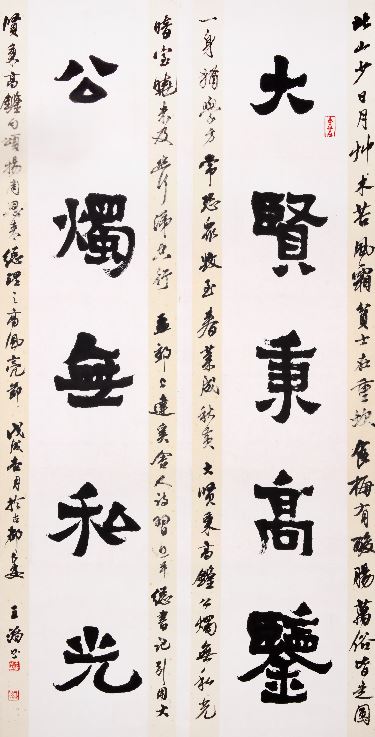 北山少日月艸木苦風霜貧士在重坎食梅有酸腸萬俗皆走圓
大賢秉高鑒
一身猶學方常恐眾毀至春葉成秋黃大賢秉高鑒公燭無私光
暗室曉未及幽行涕空行 孟郊上達奚舍人詩習近平總書記引用大
公燭無私光
賢秉高鑒句頌揚周恩來總理之高風亮節 戊戌